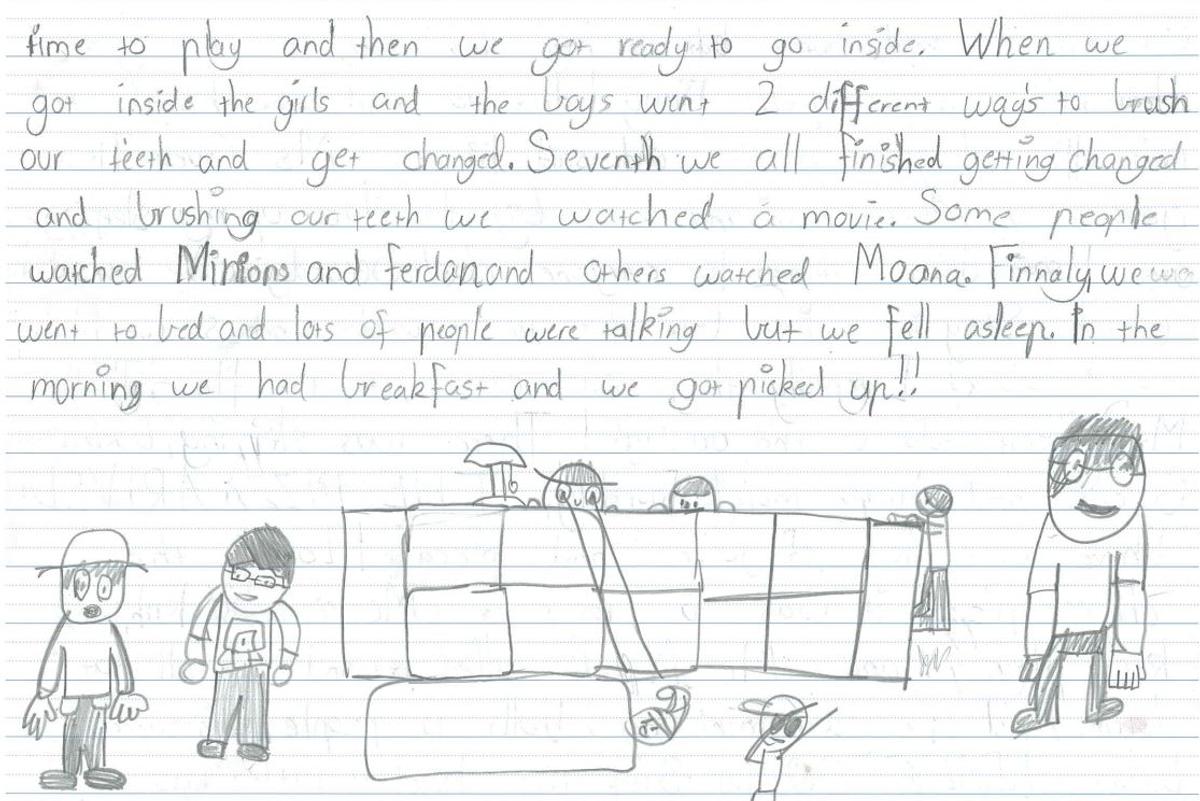 time to play and then we got ready to go inside. When we
got inside the girls and the boys went 2 different ways to brush
our teeth and get changed. Seventh we all finished getting changed
and brushing our teeth we watched a movie. Some people
watched Minions and ferdanand others watched Moana. Finnaly, we we
went to bed and lots of people were talking but we fell asleep. In the
morning we had breakfast and we got picked up!!